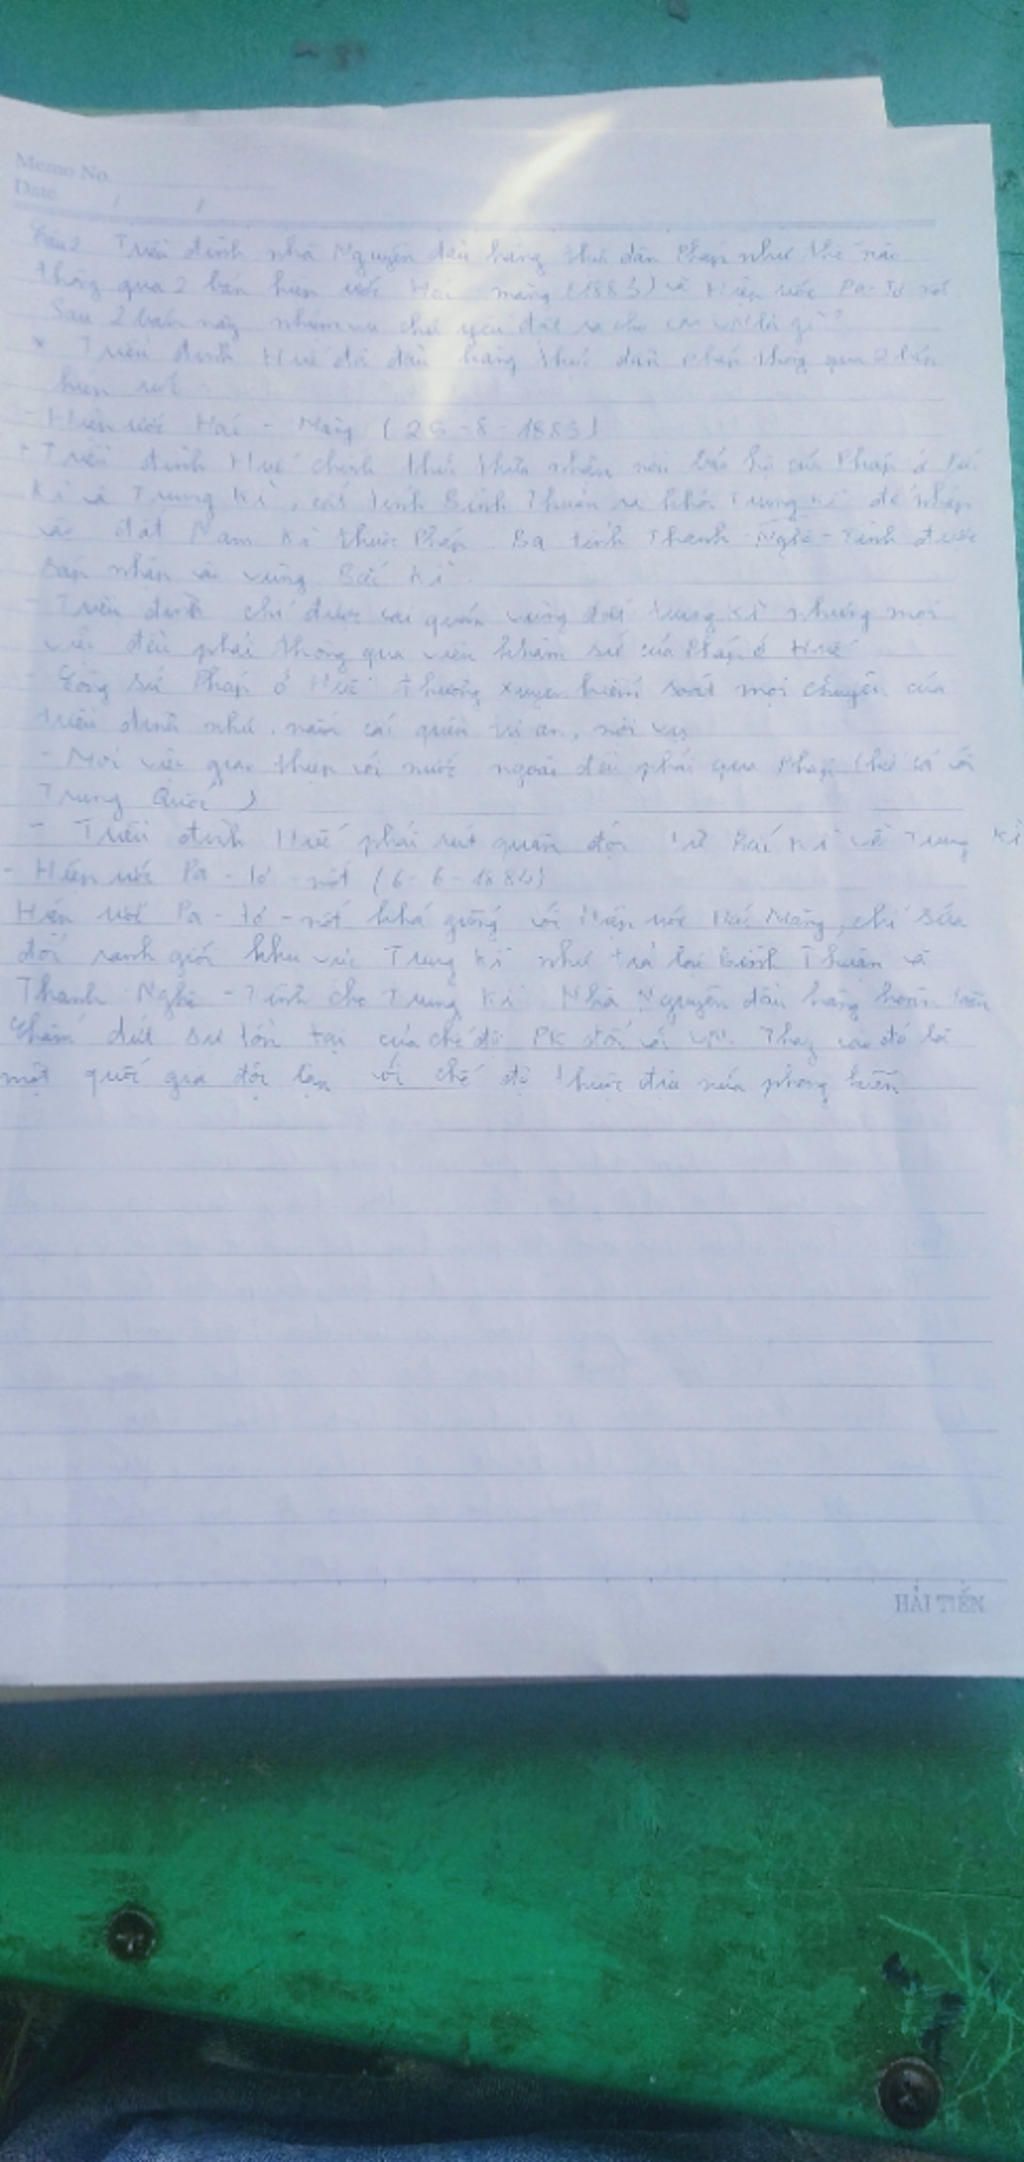 Memo No.
Date / /
Câu 2 Triều đình nhà Nguyễn đầu hàng thực dân Pháp như thế nào
thông qua 2 bản hiệp ước Hác - măng (1883) và Hiệp ước Pa-tơ nốt
Sau 2 bản này nhiệm vụ chủ yếu đặt ra cho CM VN là gì?
* Triều đình Huế đã đầu hàng thực dân Pháp thông qua 2 bản
hiệp ước
- Hiệp ước Hác - Măng (25-8-1883)
+ Triều đình Huế chính thức thừa nhận nền bảo hộ của Pháp ở Bắc
Kì và Trung Kì, cắt tỉnh Bình Thuận ra khỏi Trung Kì để nhập
vào đất Nam Kì thuộc Pháp. Ba tỉnh Thanh - Nghệ - Tĩnh được
sáp nhập vào vùng Bắc Kì.
- Triều đình chỉ được cai quản vùng đất Trung Kì nhưng mọi
việc đều phải thông qua viên khâm sứ của Pháp ở Huế
- Công sứ Pháp ở Huế thường xuyên kiểm soát mọi chuyện của
triều đình như. nắm các quyền trị an, nội vụ
- Mọi việc giao thiệp với nước ngoài đều phải qua Pháp (kể cả với
Trung Quốc)
- Triều đình Huế phải rút quân đội từ Bắc Kì về Trung Kì
- Hiệp ước Pa - tơ - nốt (6-6-1884)
Hiệp ước Pa - tơ - nốt khá giống với Hiệp ước Hác Măng, chỉ sửa
đổi ranh giới khu vực Trung Kì như trả lại Bình Thuận và
Thanh - Nghệ - Tĩnh cho Trung Kì. Nhà Nguyễn đầu hàng hoàn toàn
Chấm dứt sự tồn tại của chế độ PK đối với VN. Thay vào đó là
một quốc gia độc lập với chế độ thuộc địa nửa phong kiến
HẢI TIẾN